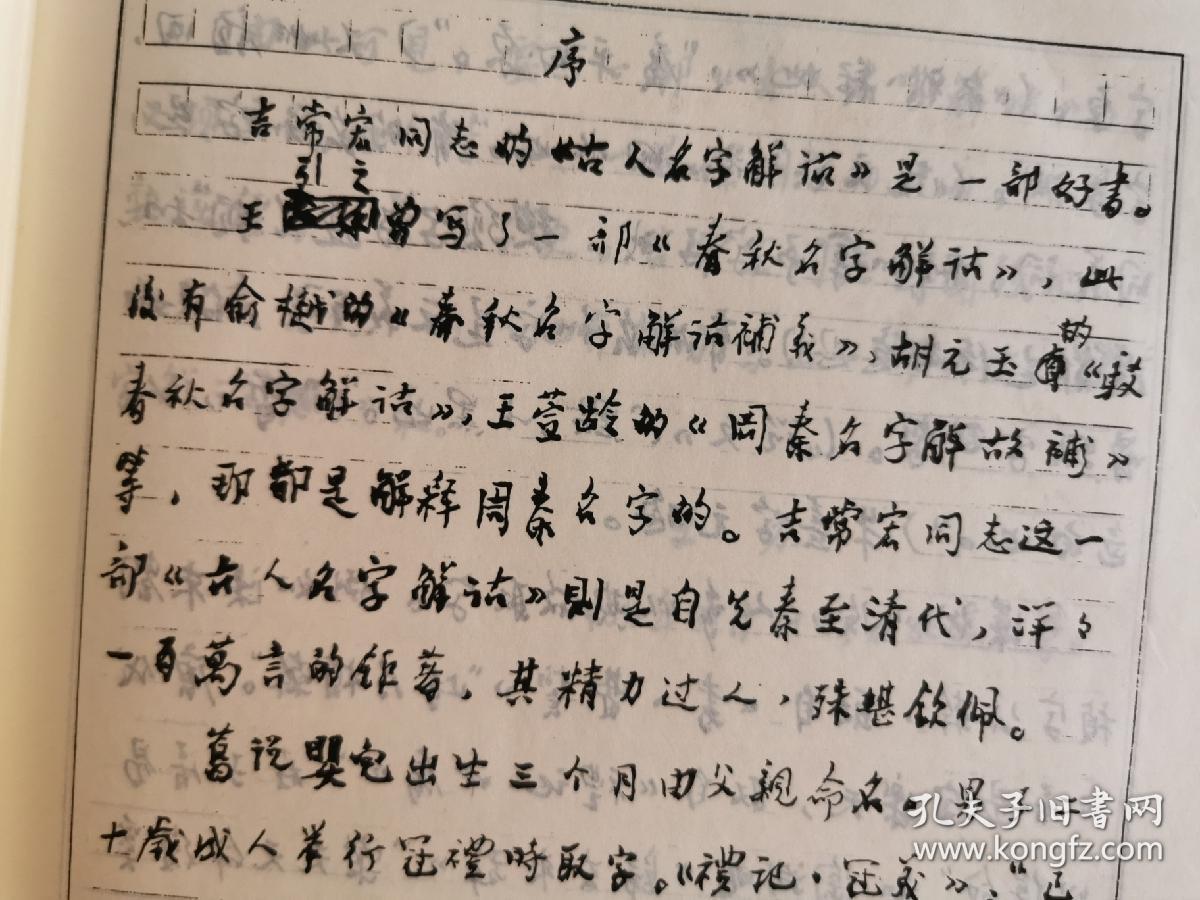 序
吉常宏同志的《古人名字解诂》是一部好書。
引之
王曾写了一部《春秋名字解诂》，此
後有俞樾的《春秋名字解诂補義》，胡元玉的《駁
春秋名字解诂》，王萱龄的《周秦名字解故補》
等，那都是解释周秦名字的。吉常宏同志这一
部《古人名字解诂》则是自先秦至清代，洋々
一百萬言的鉅著，其精力过人，殊堪钦佩。
舊说嬰兒出生三个月由父親命名。男子二
十歲成人举行冠禮時取字。《禮记·冠義》：“已
孔夫子旧書网
www.kongfz.com